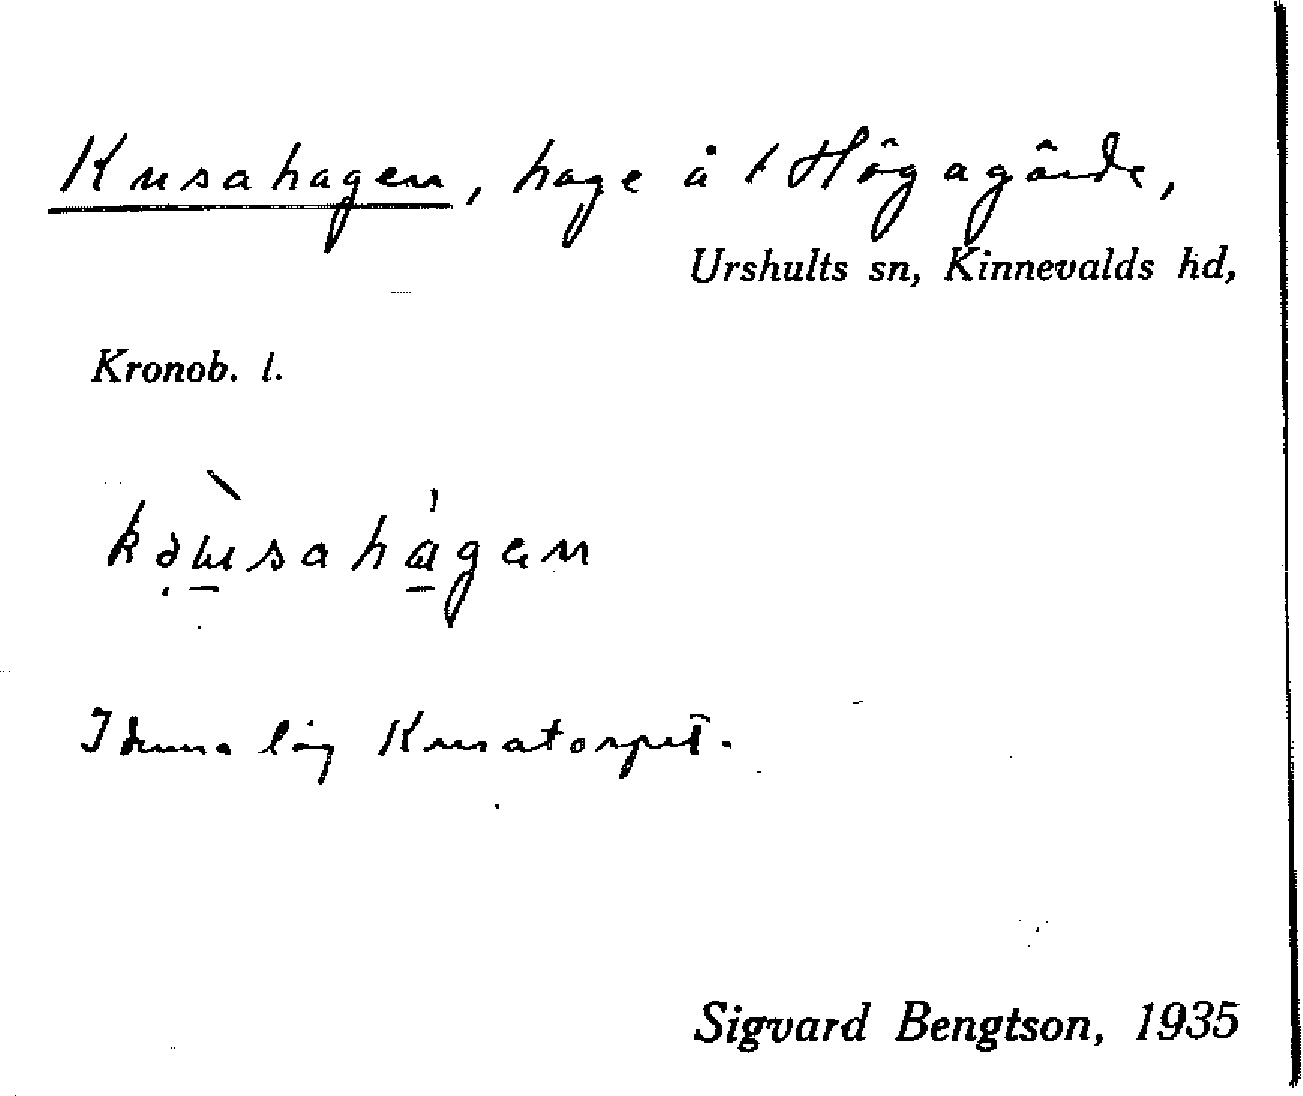 Kusahagen, hage å f Högagärde,
Urshults sn, Kinnevalds hd,
Kronob. l.
I denna låg Kusatorpet.
Sigvard Bengtson, 1935